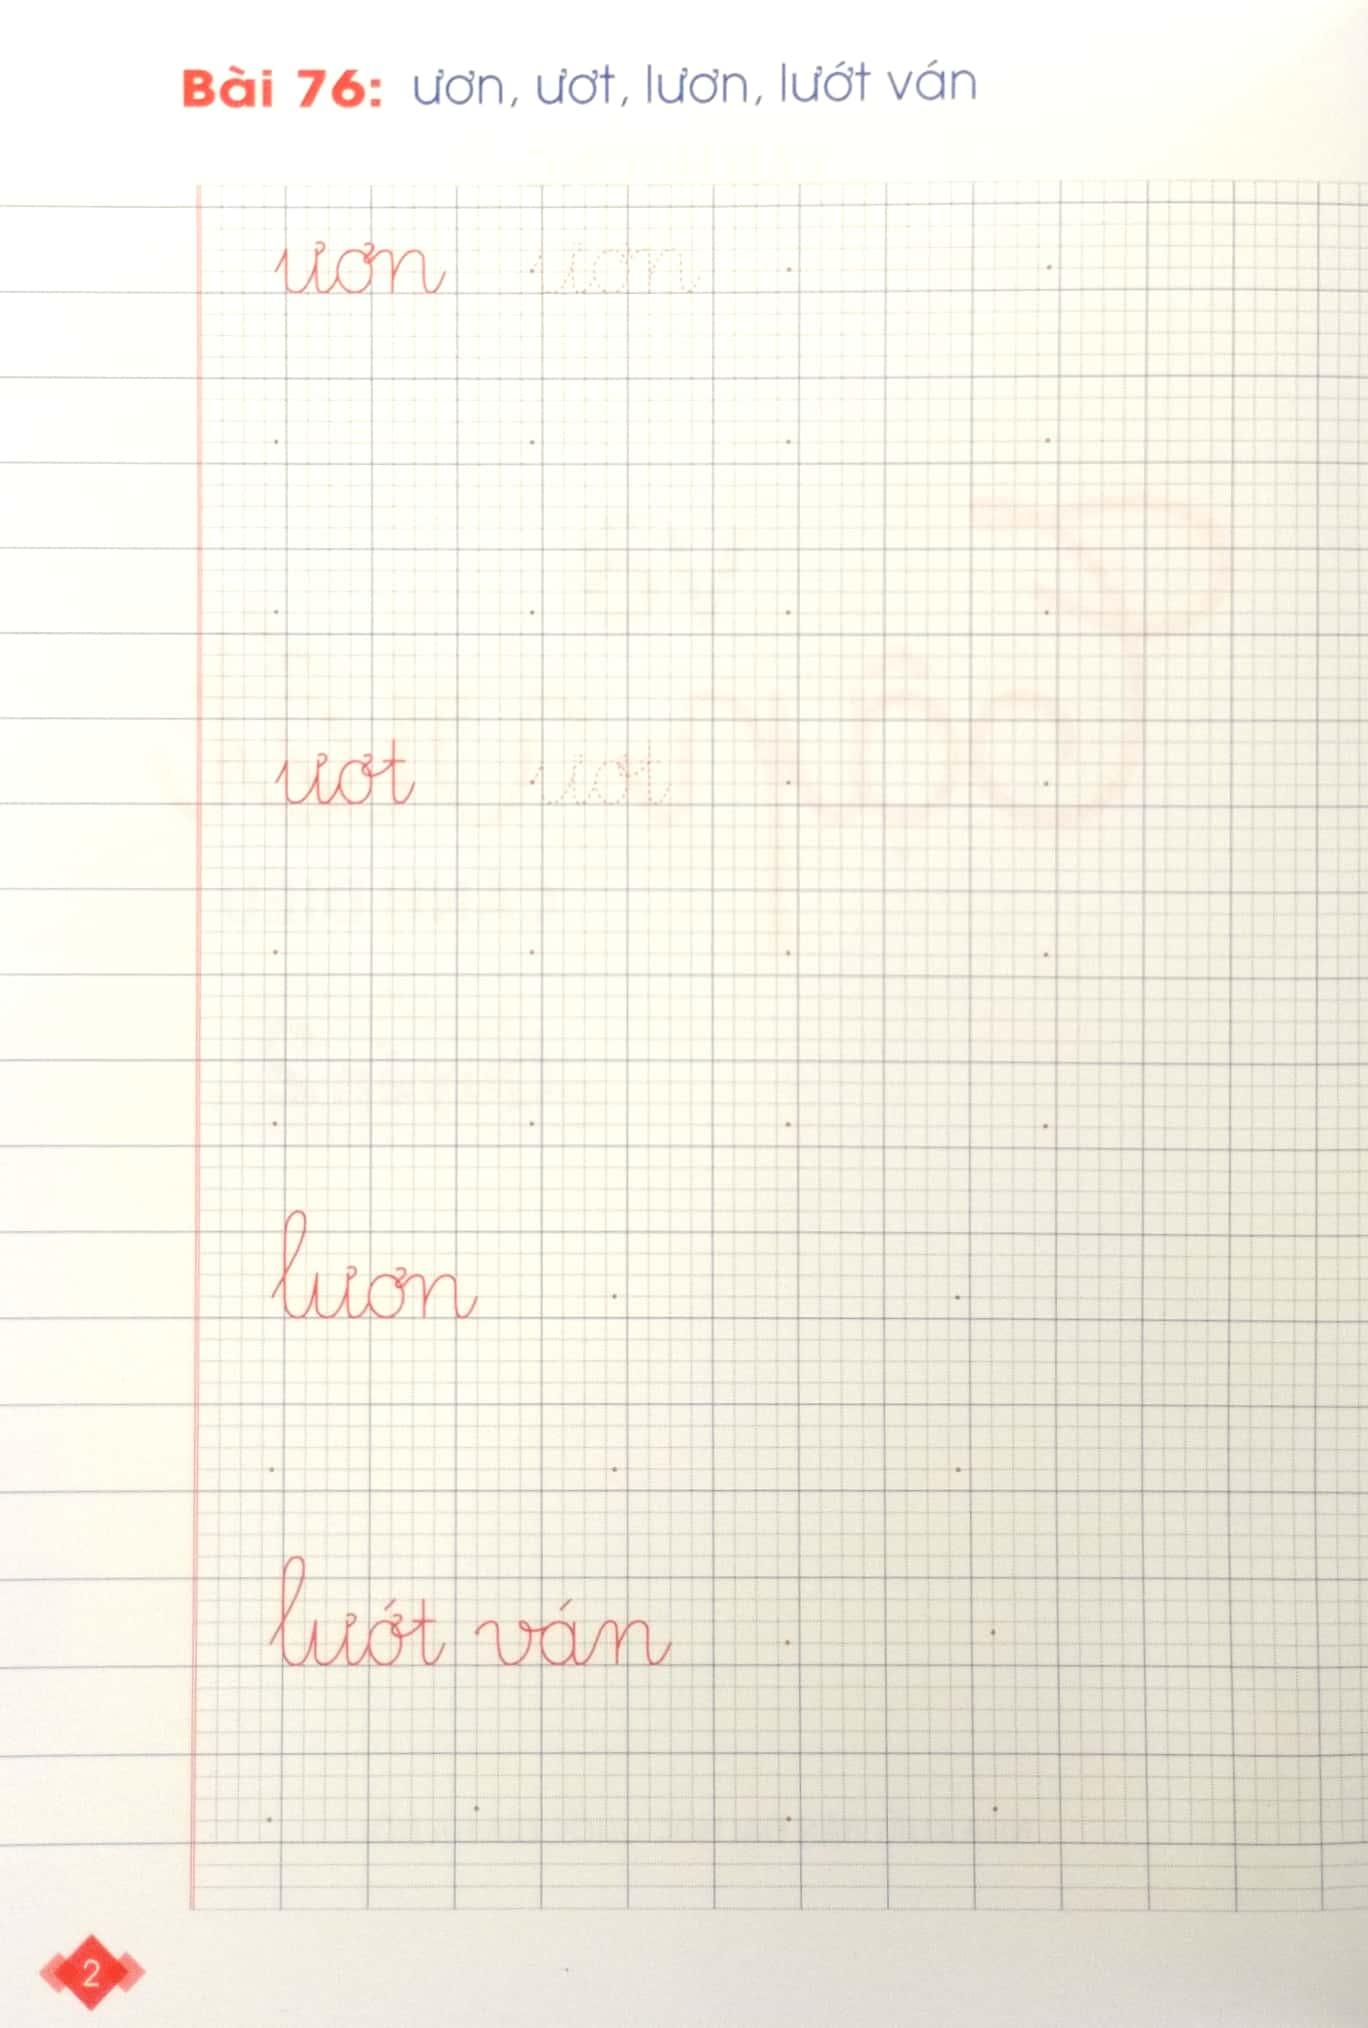 Bài 76: ươn, ươt, lươn, lướt ván
ươn ươn
ươt ươt
lươn
lướt ván
2